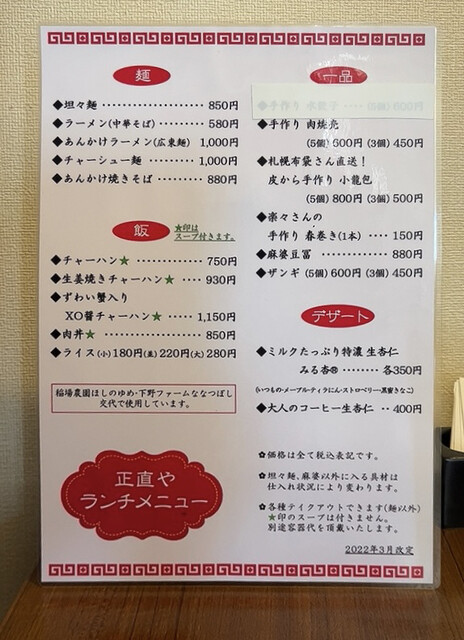 麺
◆坦々麺 ・・・・・・・・・・・・・・・・ 850円
◆ラーメン(中華そば) ・・・・・・・・ 580円
◆あんかけラーメン(広東麺) 1,000円
◆チャーシュー麺 ・・・・・・・・・ 1,000円
◆あんかけ焼きそば ・・・・・・・・ 880円
飯
★印は
スープ付きます。
◆チャーハン★ ・・・・・・・・・・・・ 750円
◆生姜焼きチャーハン★ ・・・・ 930円
◆ずわい蟹入り
XO醤チャーハン★ ・・・・・ 1,150円
◆肉丼★ ・・・・・・・・・・・・・・・・・ 850円
◆ライス(小)180円(並)220円(大)280円
稲場農園ほしのゆめ・下野ファームななつぼし
交代で使用しています。
正直や
ランチメニュー
一品
◆手作り 水餃子 ・・・・ (5個) 600円
◆手作り 肉焼売
(5個)600円 (3個)450円
◆札幌布袋さん直送！
皮から手作り 小籠包
(5個)800円 (3個)500円
◆楽々さんの
手作り 春巻き(1本) ・・・・ 150円
◆麻婆豆冨 ・・・・・・・・・・・・・・ 880円
◆ザンギ (5個)600円 (3個)450円
デザート
◆ミルクたっぷり特濃 生杏仁
みる杏® ・・・・・・・ 各350円
(いつもの・メープル・ティラにん・ストロベリー・黒蜜きなこ)
◆大人のコーヒー生杏仁 ・・ 400円
✿価格は全て税込表記です。
✿坦々麺、麻婆以外に入る具材は
仕入れ状況により変わります。
✿各種テイクアウトできます(麺以外)
★印のスープは付きません。
別途容器代を頂戴いたします。
2022年3月改定